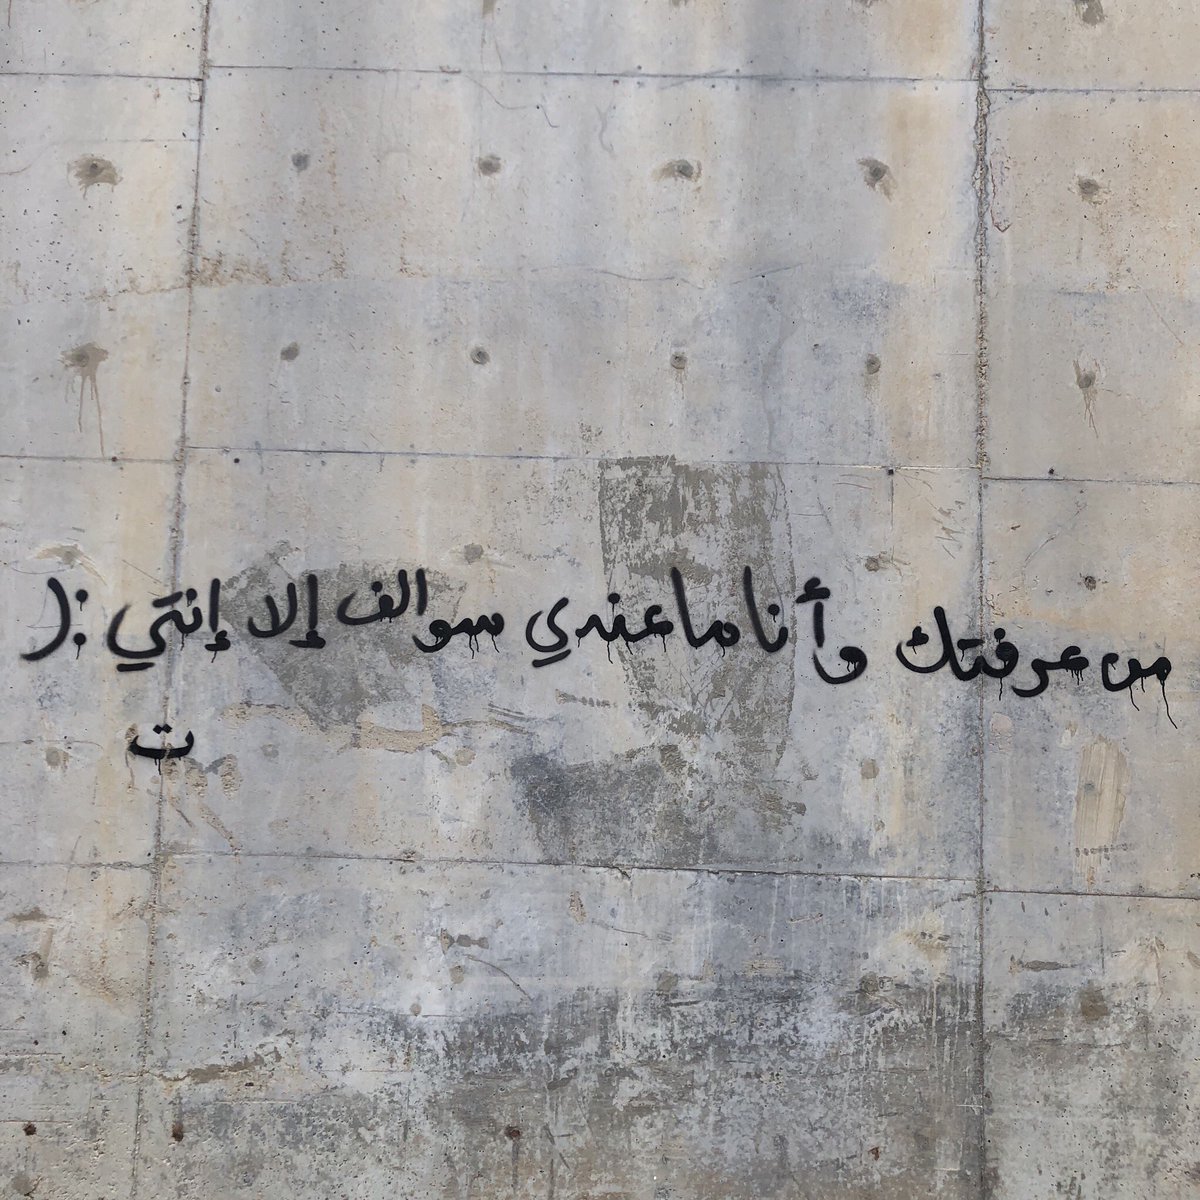 من عرفتك وأنا ما عندي سوالف إلا إنتي :(
ت